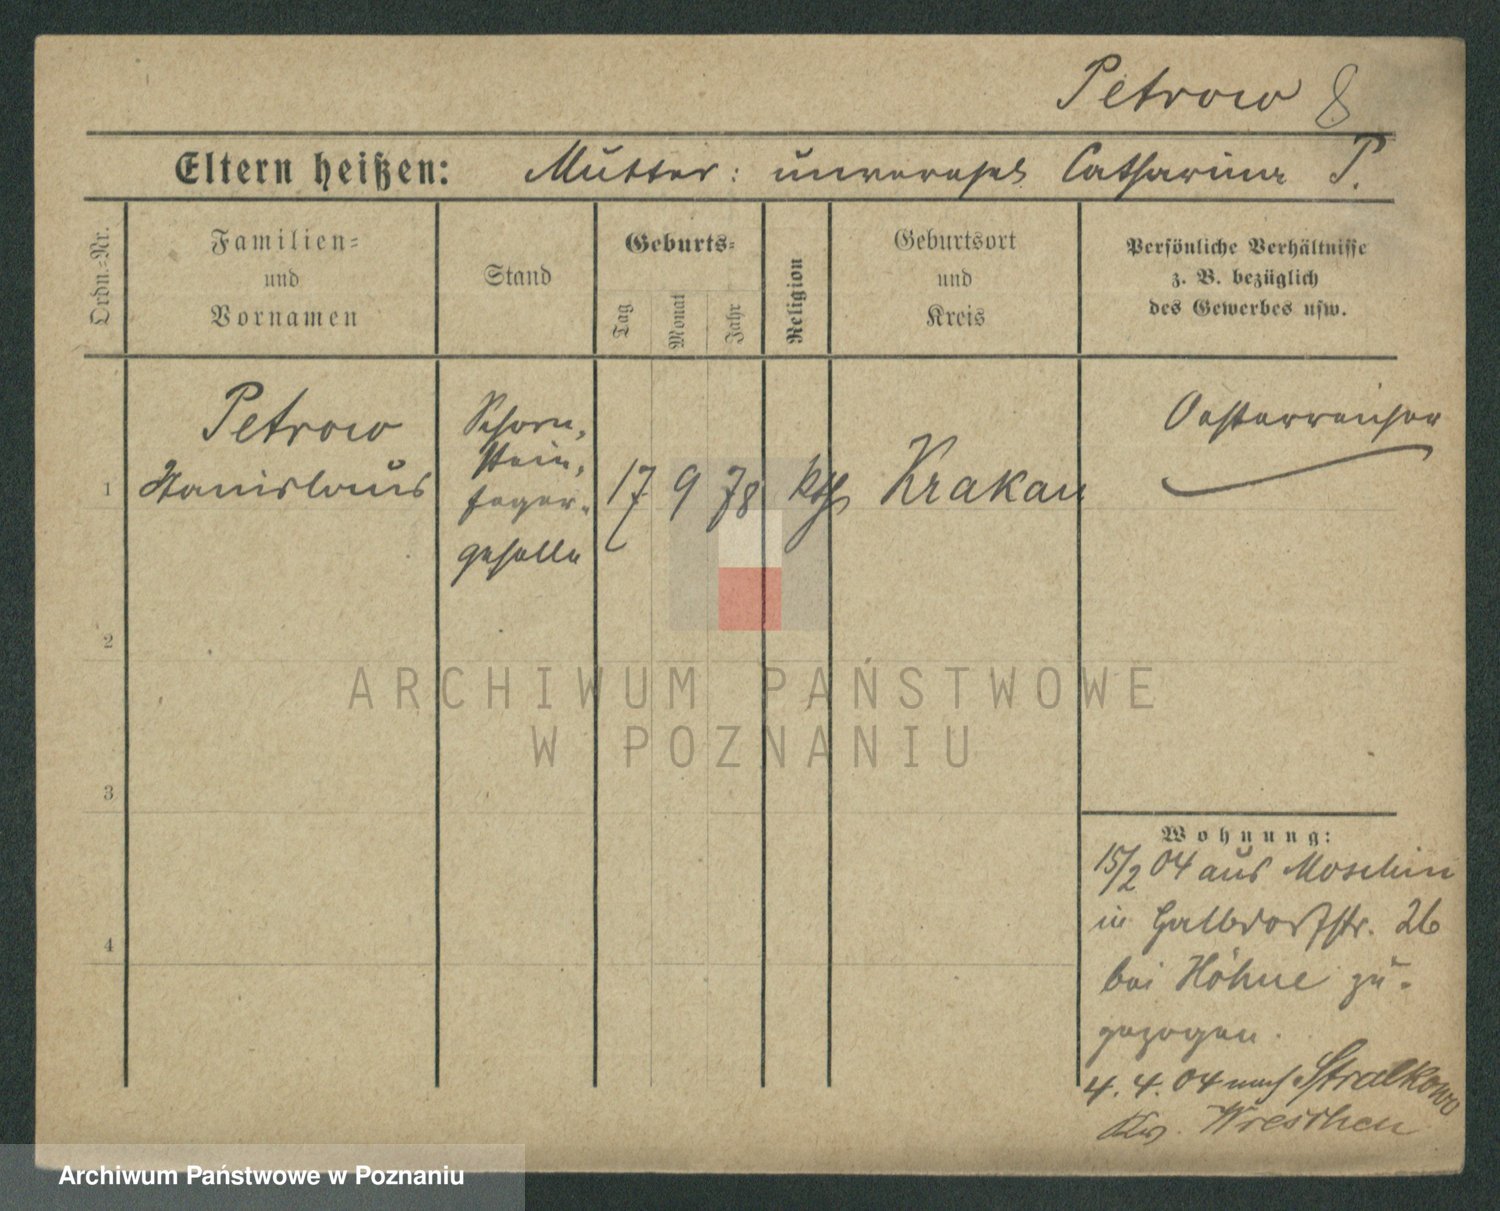 Petrow 8
Eltern heißen: Mutter: unverehel. Catharina P.
Ordn.=Nr.
Familien=
und
Vornamen
Stand
Geburts=
Tag
Monat
Jahr
Religion
Geburtsort
und
Kreis
Persönliche Verhältnisse
z. B. bezüglich
des Gewerbes usw.
1
Petrow
Stanislaus
Schorn-
stein-
feger-
geselle
17 9 78 kth
Krakau
Oesterreicher
2
ARCHIWUM PAŃSTWOWE
W POZNANIU
3
4
Wohnung:
15/2 04 aus Moschin
in Halbdorfstr. 26
bei Höhne zu-
gezogen.
4. 4. 04 nach Stralkowo
Wreschen
Archiwum Państwowe w Poznaniu